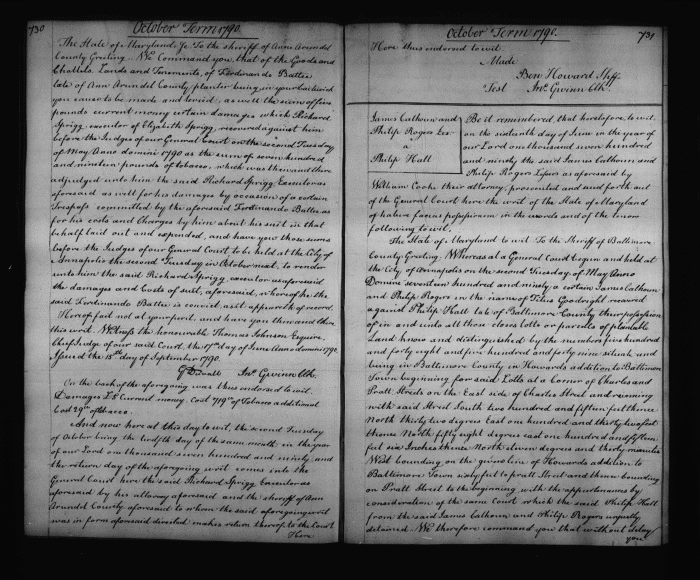 730
October Term 1790.
The State of Maryland Je. To the sheriff of Anne Arundel
County Greeting. We Command you, that of the Goods and
Chattels, Lands and Tenements, of Ferdinando Battee
late of Ann Arundel County planter being in your bailiwick
you cause to be made and levied, as well the sum of five
pounds current money certain damages which Richard
Sprigg executor of Elizabeth Sprigg, recovered against him
before the Judges of our General Court on the second Tuesday
of May Anno domini 1790 as the sum of seven hundred
and nineteen pounds of tobacco, which was then and there
adjudged unto him the said Richard Sprigg Executor as
aforesaid as well for his damages by occasion of a certain
Trespass committed by the aforesaid Ferdinando Battee as
for his costs and Charges by him about his suit in that
behalf laid out and expended, and have you those sums
before the Judges of our General Court to be held at the City of
Annapolis the second Tuesday in October next, to render
unto him the said Richard Sprigg, executor as aforesaid
the damages and Costs of suit, aforesaid, whereof he the
said Ferdinando Battee is convict, as it appears of record
Hereof fail not at your peril, and have you then and there
this writ. Witness the honourable Thomas Johnson Esquire
Chief Judge of our said Court, the 17th day of June Anno domini 1790
Issued the 15th day of September 1790.
Jno. Gwinn Clk.
On the back of the aforegoing was thus endorsed to wit.
Damages £5 Current money, Cost 719 lb of Tobacco additional
Cost 29 lb of tobacco.
And now here at this day to wit, the second Tuesday
of October being the twelfth day of the same month in the year
of our Lord one thousand seven hundred and ninety, and
the return day of the aforegoing writ comes into the
General Court here the said Richard Sprigg Executor as
aforesaid by his attorney aforesaid and the sheriff of Ann
Arundel County aforesaid to whom the said aforegoing writ
was in form aforesaid directed makes return thereof to the Court
Here
October Term 1790.
731
Here thus endorsed to wit.
Made
Ben Howard Shff.
Test Jno. Gwinn Clk.
James Calhoun and
Philip Rogers Les
a
Philip Hall
Be it remembered, that heretofore, to wit,
on the sixteenth day of June in the year of
our Lord one thousand seven hundred
and ninety the said James Calhoun and
Philip Rogers Lessors as aforesaid by
William Cooke their attorney, prosecuted and sued forth out
of the General Court here the writ of the State of Maryland
of habere facias possessionem in the words and of the tenor
following to wit.
The State of Maryland to wit To the Sheriff of Baltimore
County Greeting. Whereas at a General Court begun and held at
the City of Annapolis on the second Tuesday of May Anno
Domini seventeen hundred and ninety a certain James Calhoun
and Philip Rogers in the name of Titus Goodright recovered
against Philip Hall late of Baltimore County their possession
of in and unto all those closes lotts or parcels of plantable
Land know and distinguished by the numbers five hundred
and forty eight and five hundred and forty nine situate and
being in Baltimore County in Howards addition to Baltimore
Town beginning for said Lotts at a Corner of Charles and
Pratt Streets on the East side of Charles Street and running
with said Street South two hundred and fifteen feet thence
North thirty two degrees East one hundred and thirty two feet
thence North fifty eight degrees east one hundred and fifteen
feet six Inches thence North eleven degrees and thirty minutes
West bounding on the given line of Howards addition to
Baltimore Town sixty feet to pratt Street and thence bounding
on Pratt Street to the beginning with the appurtenances by
consideration of the same Court which the said Philip Hall
from the said James Calhoun and Philip Rogers unjustly
detained. We therefore command you that without delay
you